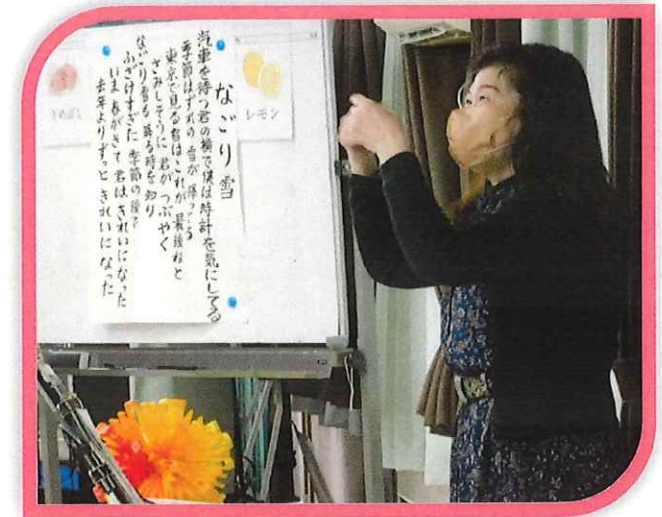 レモン
なごり雪
汽車を待つ君の横で僕は時計を気にしてる
季節はずれの雪が降ってる
東京で見る雪はこれが最後ねと
さみしそうに君がつぶやく
なごり雪も降る時を知り
ふざけすぎた季節の後で
いま春がきて君はきれいになった
去年よりずっときれいになった